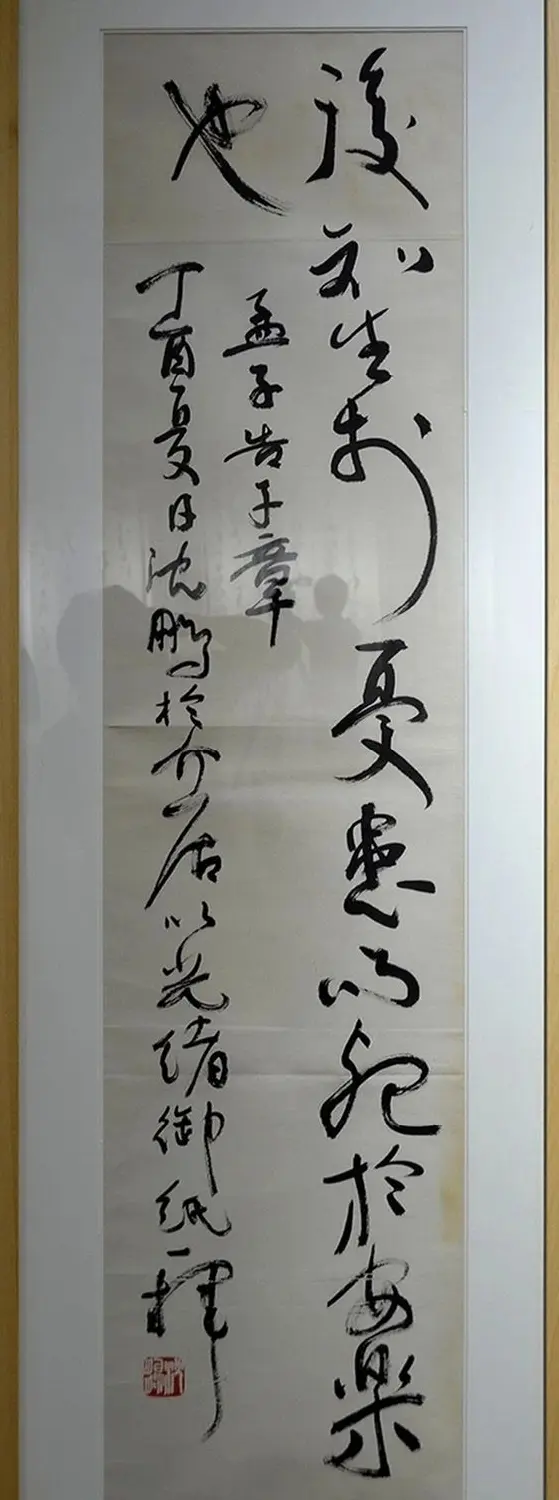 後知生於憂患而死於安樂
也
孟子告子章
丁酉夏日沈鵬於介居以光緒御紙一揮